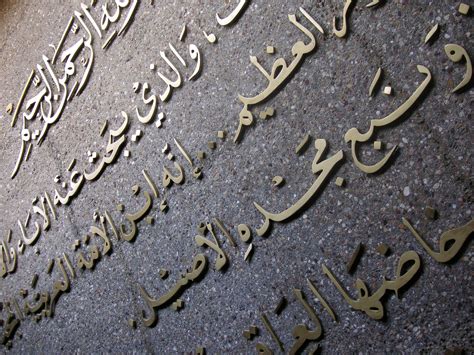 الله الرحمن الرحيم
والذي يبحث عنه الآباء
العظيم ... إنه ابن الأمة العربية
ونبع مجده الأصيل.